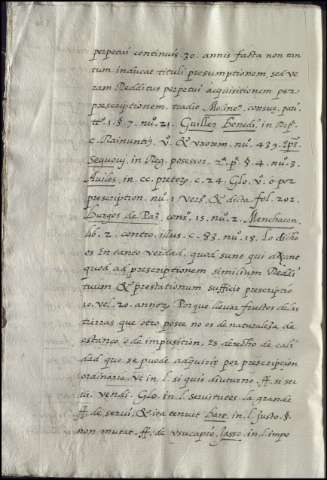 perpetui continuis. 30. annis facta non tan
tum inducat tituli presumptionem, sed ve
ram Redditus perpetui acquisitionem per
prescriptionem, tradio Moline. consue. pari.
tt. 1. §. 7. nu. 21. Guiller Benedi. in Rep.
c. Rainuntiꝰ. v. & uxorem. nu. 439.
in Reg. possessor. 2. p. §. 4. nu. 3.
Aviles, in cc. pretor. c. 24. Glo. v. o por
prescription. nu. 1. vers. & dicta fol. 202.
Burgos de Paz, cons. 15. nu. 2. Menchacon.
lib. 2. contro. illus. c. 83. nu. 15. Lo dicho
es en tanto verdad, que aun que
quod ad prescriptionem similium Reddi
tuum & prestationum sufficit prescriptio
10. vel. 20. annorꝫ. Porque llevar fructos de las
tierras que otro posee no es de naturaleza de
estanco, o de imposition, es derecho de cali
dad que se puede adquirir por prescripcion
ordinaria. ut in l. si quis diuturno. ff. si ser
vi. vendi. Glo. in l. servitutes la grande
ff. de servi. & ita tenuit Bart. in l. justo. §.
non mutat. ff. de usucapio. Jasso. in l. impo